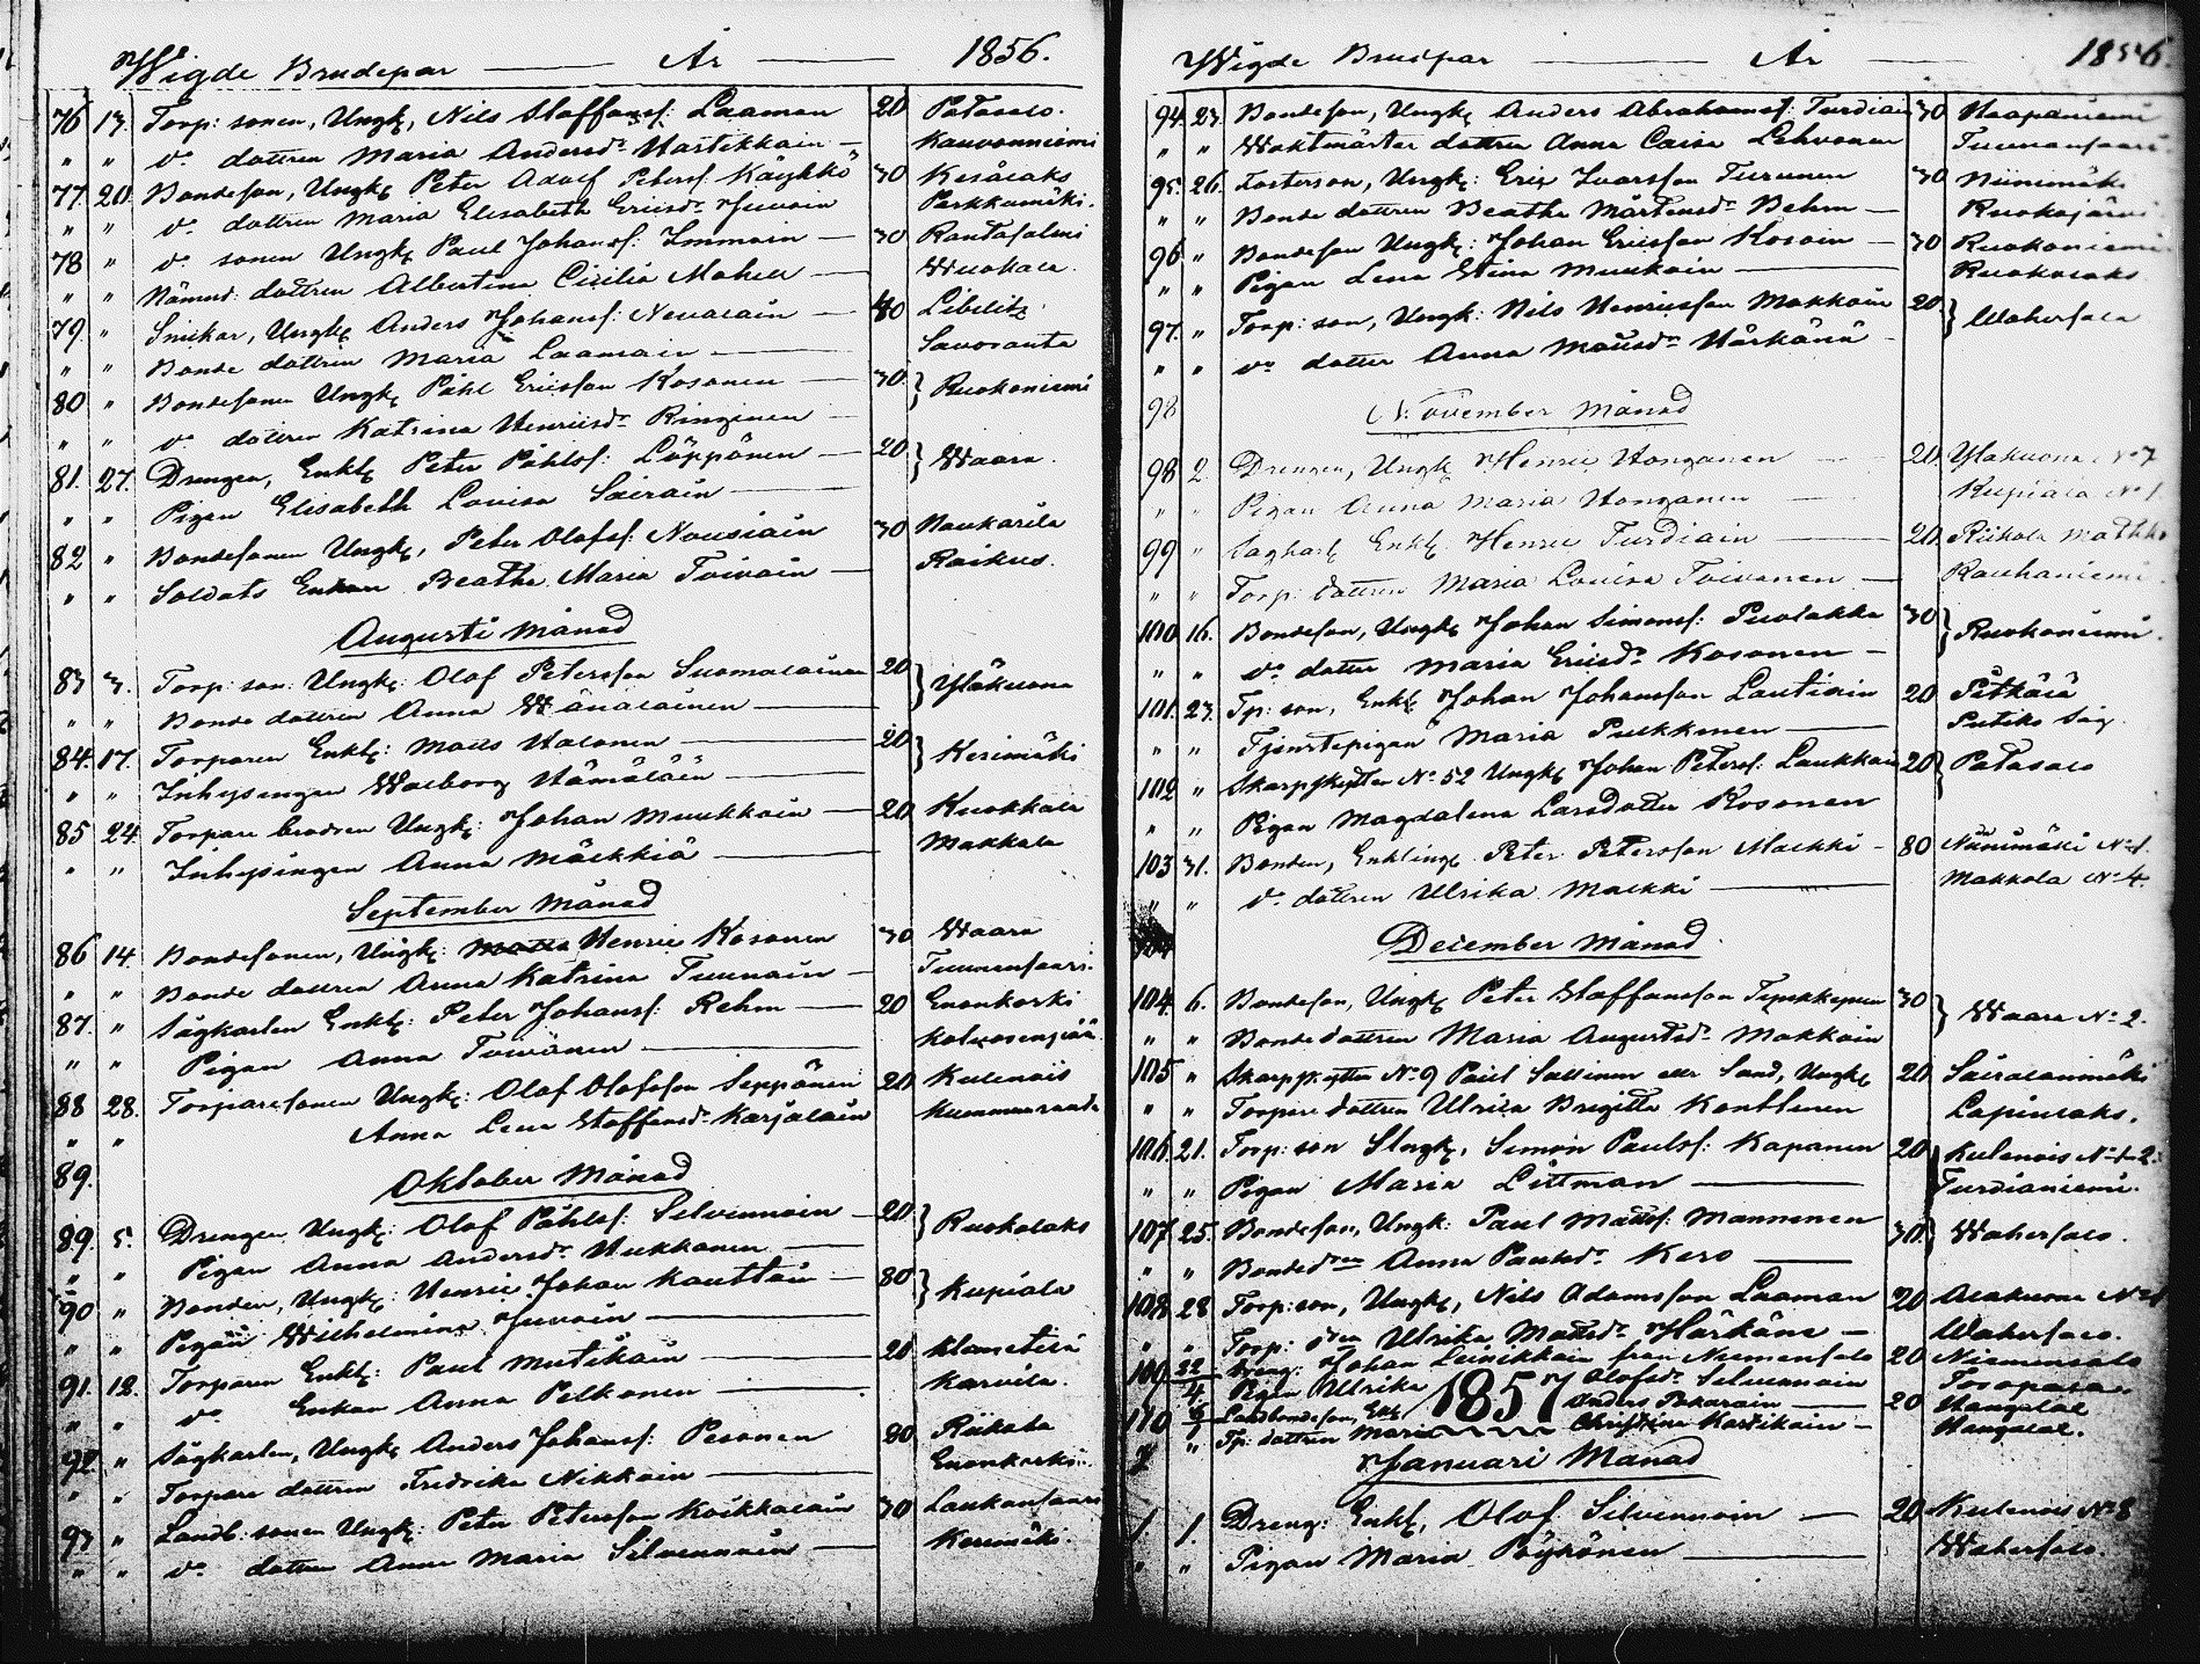 Wigde Brudepar — År — 1856.
76 13. Torp: sonen, Ungk, Nils Staffansf: Laaman 20 Patasalo.
" " do dottren Maria Andersdr Hartikkain — Kauvonniemi
77. 20. Bondeson, Ungk Peter Adolf Petersf: Käykkö 30 Kesälaks
" " do dottren Maria Elisabeth Ericsdr Juvain Parkkumäki.
78 " do sonen Ungk Paul Johansf: Immoin — 30 Rantasalmi
" " Nämnd: dottren Albertina Cicilia Malm — Wuokala.
79. " Snickar, Ungk Anders Johansf: Nevalain — 40 Libelitz.
" " Bonde dottren Maria Laamain — Savoranta
80 " Bondesonen Ungk Påhl Ericsson Kosonen — 30. } Ruokoniemi
" " do dottren Katrina Henricsdr Ringinen —
81. 27. Drengen, Enkl Peter Påhlsf: Löppönen — 20 } Waara.
" " Pigan Elisabeth Lovisa Sairain —
82 " Bondesonen Ungk, Peter Olofsf: Nousiain 30 Naukarila
" " Soldats Enkan Beatha Maria Toivain — Raikus.
Augusti Månad
83 3. Torp: son: Ungk: Olof Petersson Suomalainen 20 } Yläkuona
" " Bonde dottren Anna Wänäläinen —
84. 17. Torparen Enkl: Matts Halonen — 20 } Kerimäki
" " Inhysingen Walborg Hämäläin —
85 24. Torpare brodren Ungk: Johan Muukkoin — 20 Kuokkala
" " Inhysingen Anna Mäckkiä — Makkola
September Månad
86 14. Bondesonen, Ungk: Henric Kosonen 30 Waara
" " Bonde dottren Anna Katrina Tuunain — Tuunansaari.
87. " Sågkarlen Enkl: Peter Johansf: Rehm — 20 Enonkoski
" " Pigan Anna Toivanen — Kolvosenpää
88 28. Torparesonen Ungk: Olof Olofsson Seppänen 20 Kulenois
" " Anna Lena Staffansdr Karjalain
89. Oktober Månad
89. 5. Drengen Ungk: Olof Påhlsf: Silvennoin — 20 } Ruokolaks
" " Pigan Anna Andersdr Hukkanen —
90 " Bonden, Ungk: Henric Johan Kauttain — 80 } Kupiala
" " Pigan Wilhelmina Juvain —
91. 12. Torparen Enkl: Paul Mutikain — 20 Klametilä
" " do Enkan Anna Pelkonen — Karvila.
92 " Sågkarlen, Ungk Anders Johansf: Pesonen 20 Riikola
" " Torpare dottren Fredrika Nikkain — Enonkoski.
93 " Landb: sonen Ungk: Peter Petersson Koikkalain 30 Laukansaari
" " do dottren Anna Maria Silvennoin — Kerimäki.
Wigde Brudpar — År — 1856.
94. 23. Bondeson, Ungk Anders Abrahamsf: Turdiain 30 Haapaniemi
" " Waktmäster dottren Anna Caisa Lehvonen Tuunansaari
95. 26. Fosterson, Ungk: Eric Ivarsson Turunen 30 Niinimäki
" " Bonde dottren Beatha Mårtensdr Behm — Ruokojärvi
96 " Bondeson Ungk: Johan Ericsson Kosoin — 30 Ruokoniemi
" " Pigan Lena Stina Muukoin — Ruokolaks
97. " Torp: son, Ungk: Nils Henricsson Makkoin 20. } Wahersalo
" " do dotter Anna Matsdr Härkänä —
98 November Månad
98 2. Drengen, Ungk Henric Honganen — 20. Yläkuona No 7
" " Pigan Anna Maria Honganen — Kupiala No 1.
99 " Sågkarl Enkl Henric Turdiain — 20. Riikola
" " Torp: dottren Maria Lovisa Toivanen — Rauhaniemi.
100. 16. Bondeson, Ungk Johan Simonsf: Puolakka 30 } Ruokoniemi.
" " do dotter Maria Ericsdr Kosonen —
101. 23. Tp: son, Enkl Johan Johansson Lautiain 20 Pitkälä
" " Tjenstepigan Maria Pulkkinen — Putiko Såg.
102 " Skarpskytten No 52 Ungk Johan Petersf: Laukkain 20 } Patasalo
" " Pigan Magdalena Larsdotter Kosonen
103 31. Bonden, Enkling Peter Petersson Malkki — 80 Niinimäki No 1.
" " do dottren Ulrika Malkki — Makkola No 4.
December Månad
104. 6. Bondeson, Ungk Peter Staffansson Tynkkynen 30 } Waara No 2.
" " Bonde dottren Maria Augustsdr Makkoin
105 " Skarpskytten No 9 Paul Sallinen eller Sand, Ungk 20 Sairalanmäki
" " Torpare dottren Ulrica Brigitta Konttinen Lapinlaks.
106. 21. Torp: son Ungk, Simon Paulsf: Kapanen 20 Kulenois No 1-2.
" " Pigan Maria Littman — Turdianiemi.
107 25. Bondeson, Ungk: Paul Mattsf: Manninen 30. } Wahersalo.
" " Bondedren Anna Paulsdr Kero —
108 28 Torp: son, Ungk, Nils Adamsson Laaman 20 Alakuona
" " Torp: dren Ulrika Mattsdr Härkäne — Wahersalo.
109 Dreng: Johan Leinikkain från Niemensalo 20 Niemensalo
Pigan Ulrika Olofsdr Silvennoin
110 Landbondeson, Enkl Anders Pakarain — 20 Haugalal
" Tp: dottren Maria Christina Hartikain — Haugalal.
1857
Januari Månad
1. 1. Dreng: Enkl, Olof Silvennoin — 20 Kulenois No 8
" " Pigan Maria Pöyhönen — Wahersalo.